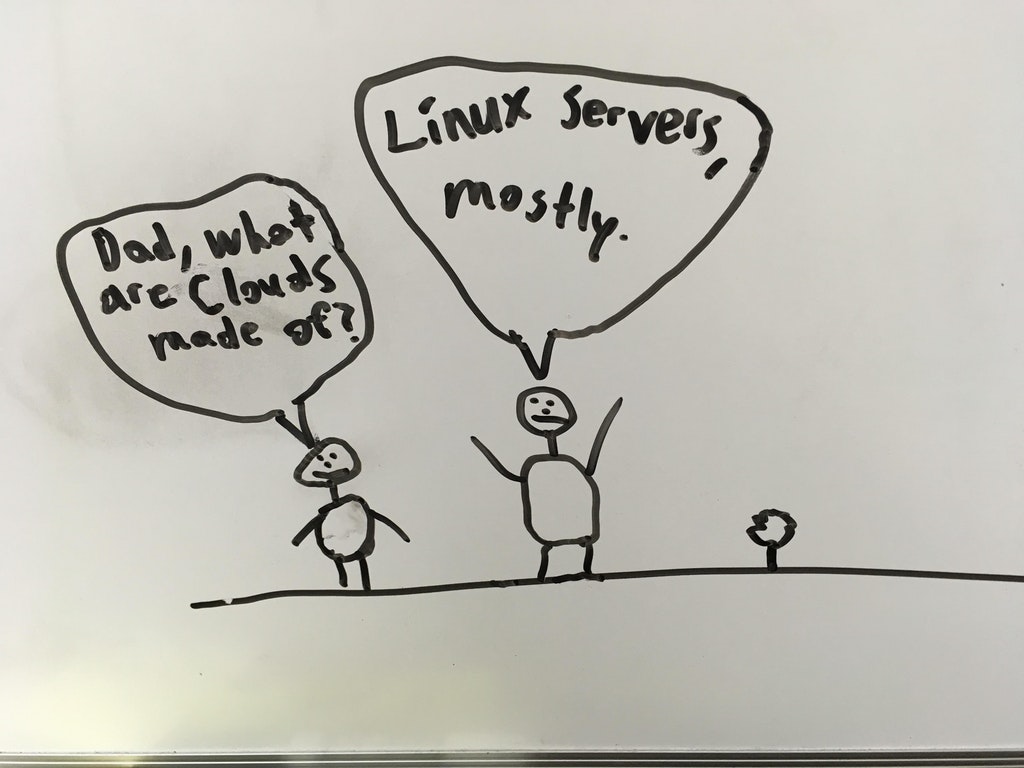 Dad, what
are Clouds
made of?
Linux Servers,
mostly.